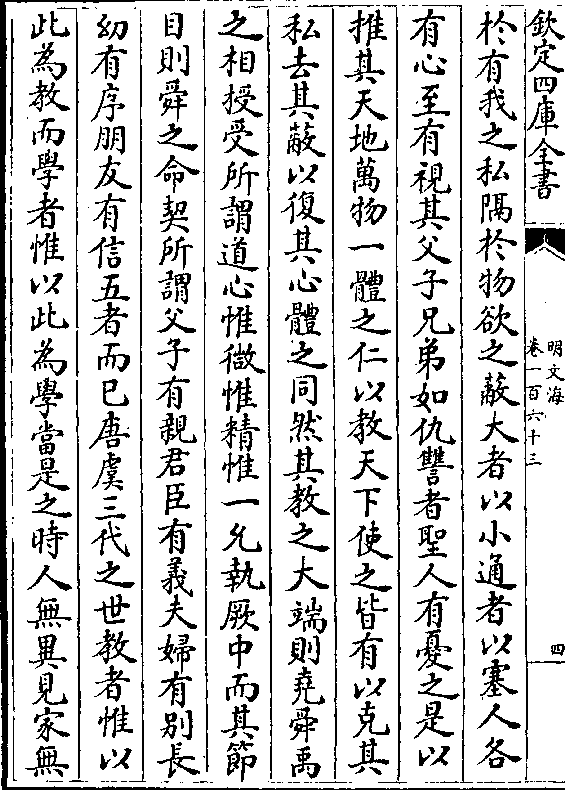 欽定四庫全書
明文海
卷一百六十三
四
於有我之私隔於物欲之蔽大者以小通者以塞人各
有心至有視其父子兄弟如仇讐者聖人有憂之是以
推其天地萬物一體之仁以教天下使之皆有以克其
私去其蔽以復其心體之同然其教之大端則堯舜禹
之相授受所謂道心惟微惟精惟一允執厥中而其節
目則舜之命契所謂父子有親君臣有義夫婦有别長
幼有序朋友有信五者而已唐虞三代之世教者惟以
此為教而學者惟以此為學當是之時人無異見家無